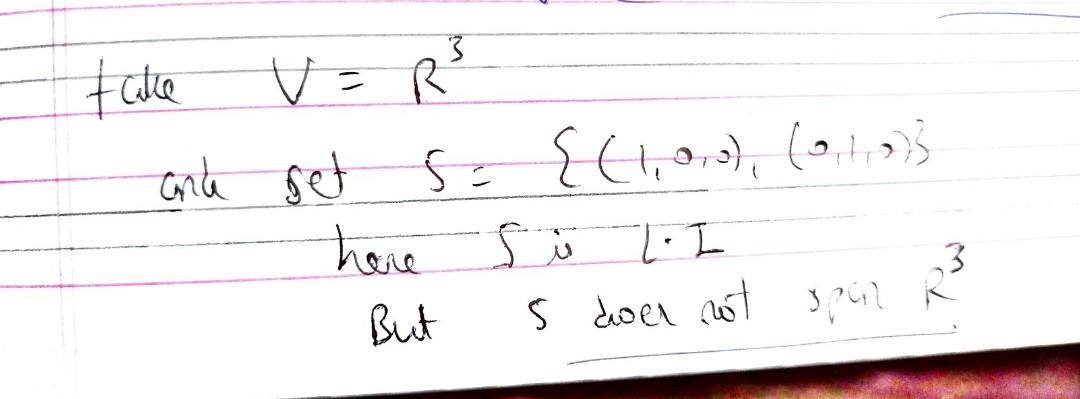 take V = R³
and set S = {(1,0,0), (0,1,0)}
here S is L.I
But S does not span R³